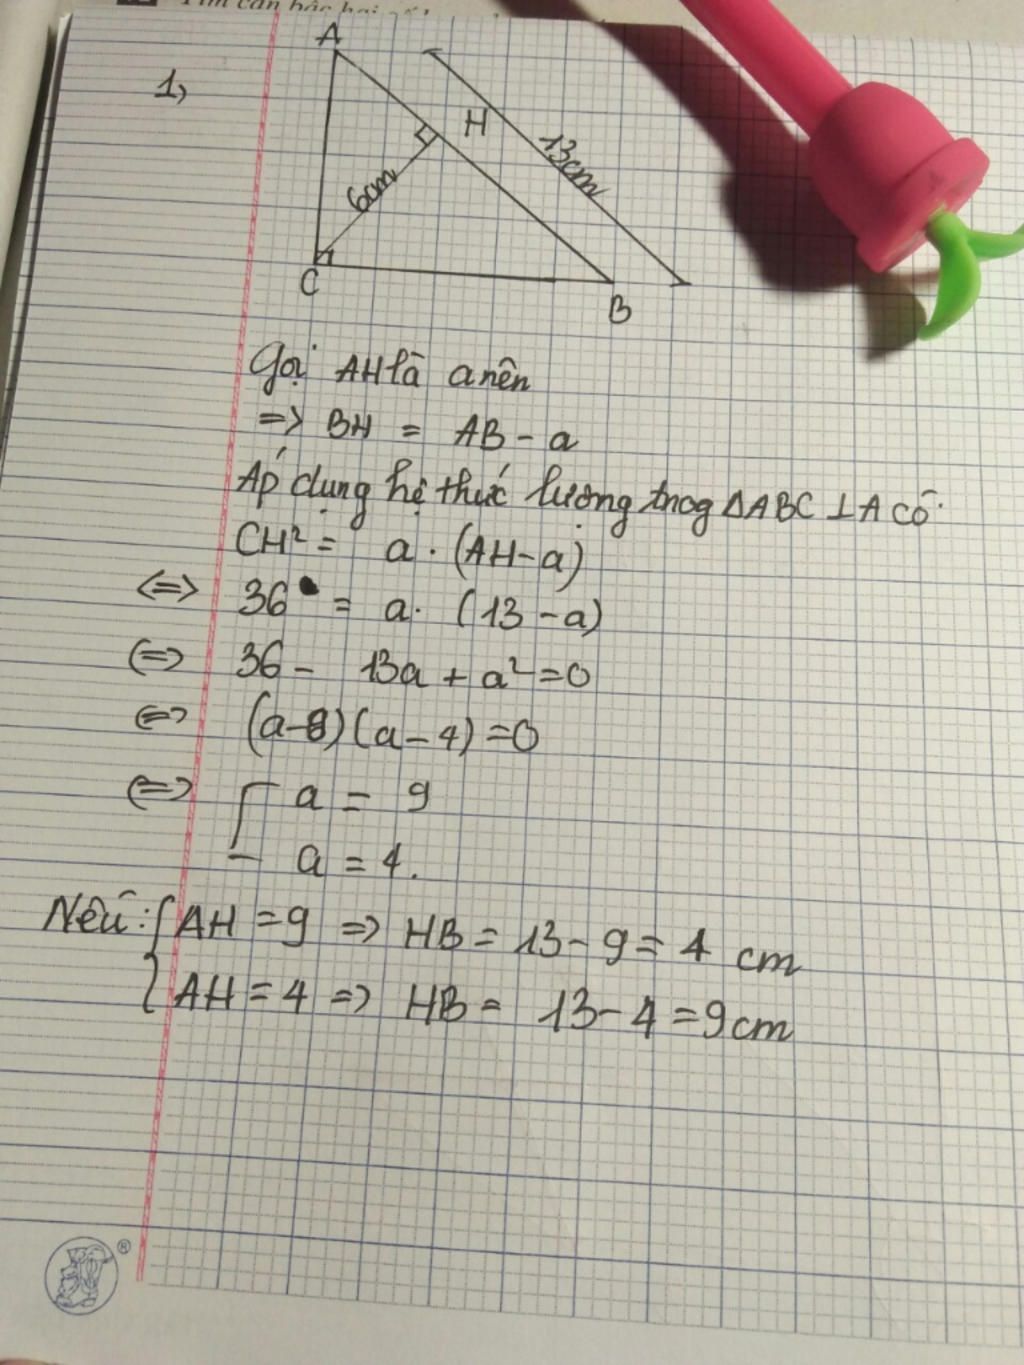 Tìm căn bậc hai số
1,
A
H
13cm
6cm
C
B
Gọi AH là a nên
=> BH = AB - a
Áp dụng hệ thức lượng trog ΔABC ⊥A có
CH² = a . (AH - a)
<=> 36 = a . (13 - a)
<=> 36 - 13a + a² = 0
<=> (a - 9)(a - 4) = 0
<=> [ a = 9
a = 4.
Nếu : { AH = 9 => HB = 13 - 9 = 4 cm
AH = 4 => HB = 13 - 4 = 9cm
®